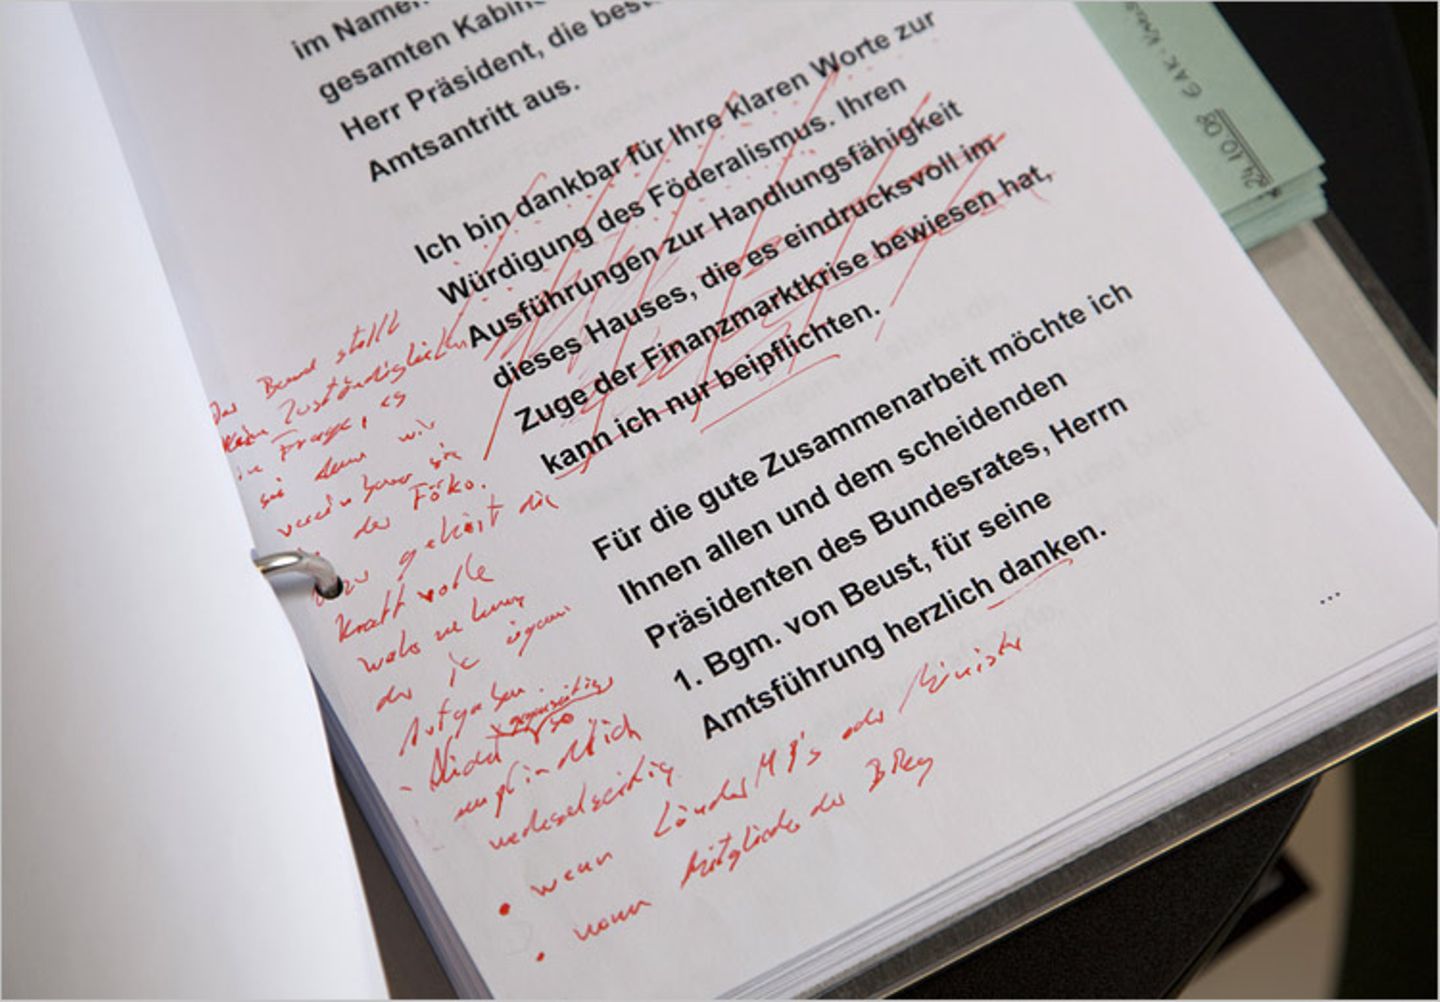 im Namen
gesamten Kabine
Herr Präsident, die best
Amtsantritt aus.
Ich bin dankbar für Ihre klaren Worte zur
Würdigung des Föderalismus. Ihren
Ausführungen zur Handlungsfähigkeit
dieses Hauses, die es eindrucksvoll im
Zuge der Finanzmarktkrise bewiesen hat,
kann ich nur beipflichten.
Für die gute Zusammenarbeit möchte ich
Ihnen allen und dem scheidenden
Präsidenten des Bundesrates, Herrn
1. Bgm. von Beust, für seine
Amtsführung herzlich danken.
...
Der Bund stellt
keine Zuständigkeiten
in Frage, es
sei denn wir
vereinbaren sie
in der Föko.
gehört die
kraftvolle
Wahrnehmung
der
Aufgaben.
- Nicht so
gegenseitig
empfindlich
wechselseitig
• wenn Länder MP's oder Minister
• wenn Mitglieder der BReg
24.10.08